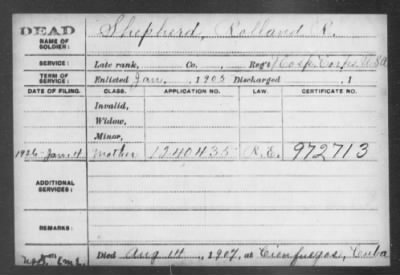 DEAD
NAME OF SOLDIER: Shepherd, Rolland R.
SERVICE: Late rank, Co. Reg't Hosp. Corps, U.S.A
TERM OF SERVICE: Enlisted Jan. 1905 Discharged , 1
DATE OF FILING. CLASS. APPLICATION NO. LAW. CERTIFICATE NO.
Invalid,
Widow,
Minor,
1926-Jan 4 Mother 1240435 972713
ADDITIONAL SERVICES:
REMARKS:
Died Aug 14, 1907, at Cienfuegos, Cuba